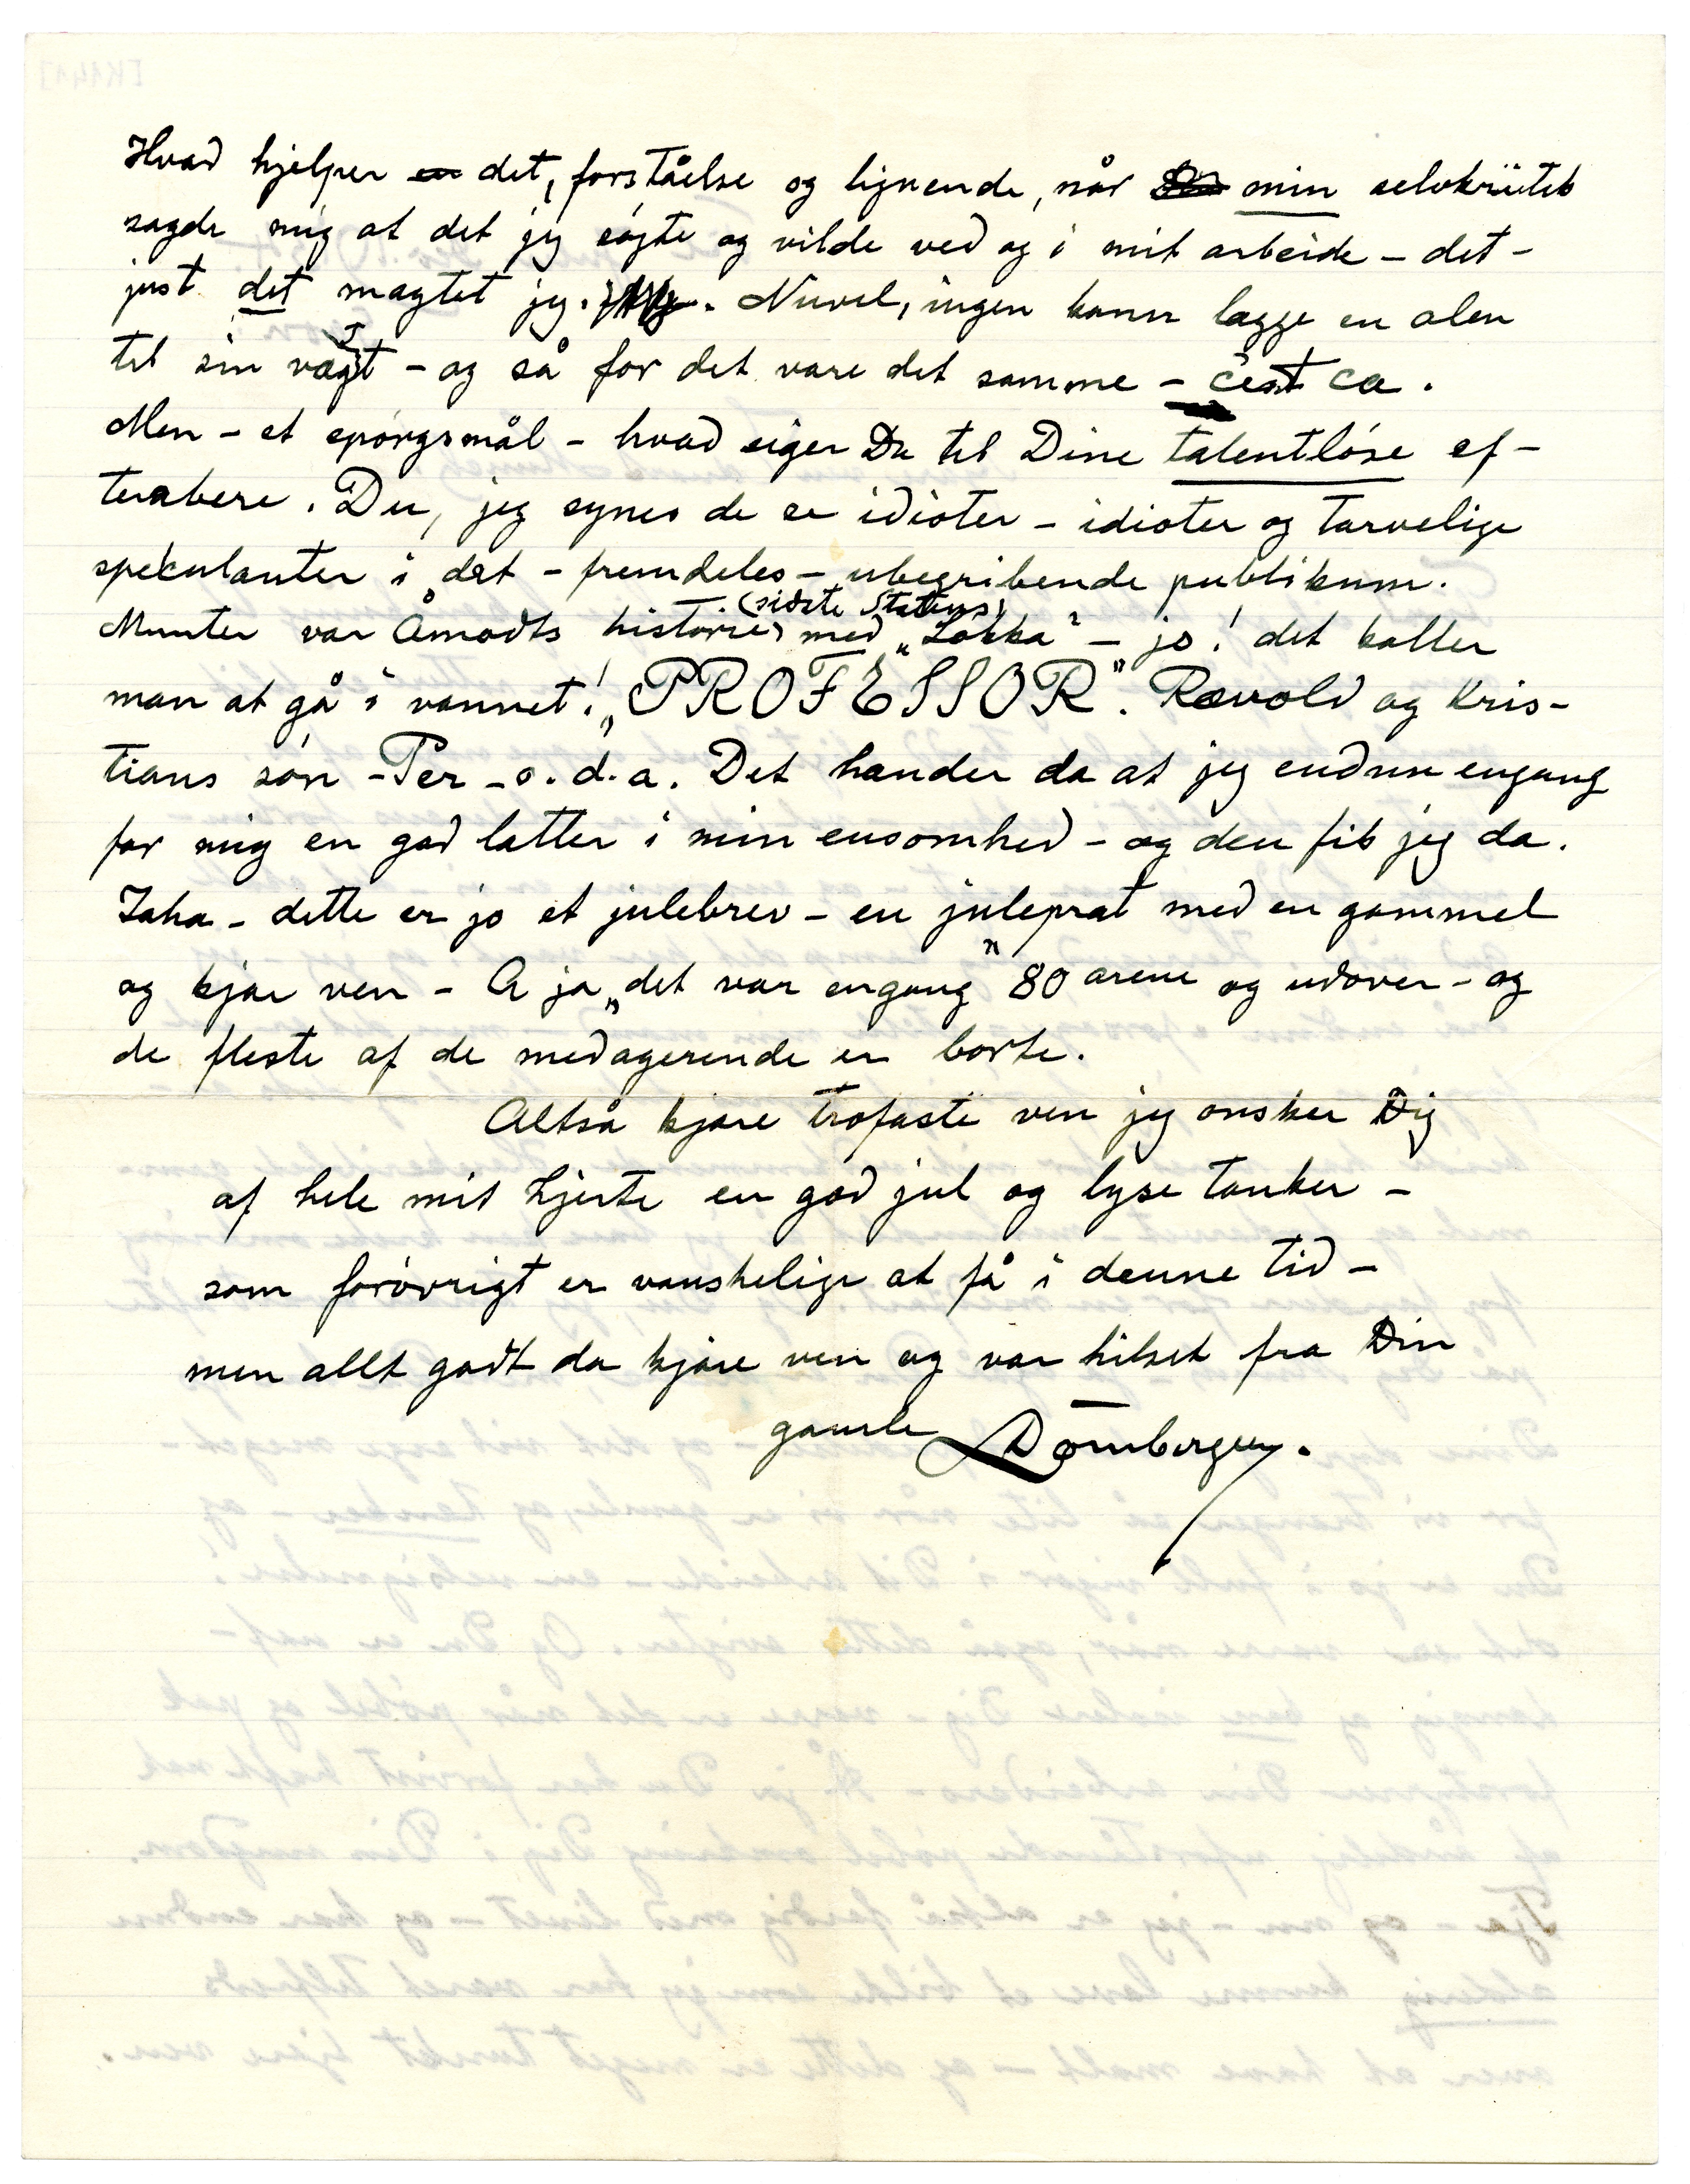 Hvad hjelper er det, forståelse og lignende, når min selvkriitik
sagde mig at det jeg søgte og vilde ved og i mit arbeide – det –
just det magtet jeg. Nuvel, ingen kann lægge en alen
til sin vægt – og så for det være det samme – c'est ca.
Men – et spørgsmål – hvad siger Du til Dine talentløse ef-
terabere. Du, jeg synes de er idioter – idioter og tarvelige
spekulanter i det – fremdeles – ubegribende publikum.
Munter var Åmodts historie (sidste Statens) med „Løkka" – jo! det kaller
man at gå i vannet! „PROFESSOR". Rævold og Kris-
tians søn – Per – o.d.a. Det hænder da at jeg endnu engang
får mig en god latter i min ensomhed – og den fik jeg da.
Jaha – dette er jo et julebrev – en juleprat med en gammel
og kjær ven – A ja „det var engang" 80 arene og udover – og
de fleste af de medagerende er borte.
Altså kjære trofaste ven jeg ønsker Dig
af hele mit hjerte en god jul og lyse tanker –
som forøvrigt er vanskelige at få i denne tid –
men allt godt da kjære ven og vær hilset fra Din
gamle Dørnberger.